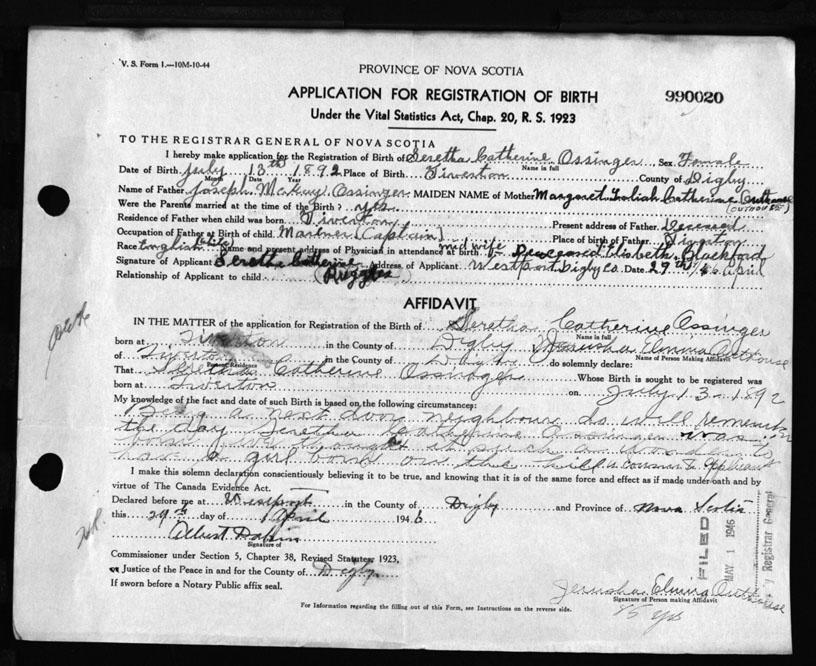 V. S. Form 1.—10M-10-44
PROVINCE OF NOVA SCOTIA
APPLICATION FOR REGISTRATION OF BIRTH
990020
Under the Vital Statistics Act, Chap. 20, R. S. 1923
TO THE REGISTRAR GENERAL OF NOVA SCOTIA
I hereby make application for the Registration of Birth of Seretha Catherine Ossinger Sex Female
Name in full
Date of Birth July 13th 1892 Place of Birth Tiverton County of Digby
Month Date Year
Name of Father Joseph McKay Ossinger MAIDEN NAME of Mother Margaret Catherine Outhouse
(OUTHOUSE)
Were the Parents married at the time of the Birth? yes
Residence of Father when child was born Tiverton Present address of Father Deceased
Occupation of Father at Birth of child Mariner (Captain) Place of birth of Father Tiverton
Race English Name and present address of Physician in attendance at birth midwife Deceased Elisbeth Blackford
Signature of Applicant Seretha Catherine Address of Applicant Westport Digby Co. Date 29th April
Relationship of Applicant to child (Ruggles)
AFFIDAVIT
IN THE MATTER of the application for Registration of the Birth of Seretha Catherine Ossinger
Name in full
born at Tiverton in the County of Digby Jerusha Elmina Outhouse
Name of Person Making Affidavit
of Tiverton in the County of Digby do solemnly declare:
Present Residence
That Seretha Catherine Ossinger Whose Birth is sought to be registered was
born at Tiverton on July 13 1892
My knowledge of the fact and date of such Birth is based on the following circumstances:
Being a next door neighbour do well remember
the day Seretha Catherine Ossinger was
born thought it such a to
have a girl born on the cousin to applicant
I make this solemn declaration conscientiously believing it to be true, and knowing that it is of the same force and effect as if made under oath and by
virtue of The Canada Evidence Act.
Declared before me at Westport in the County of Digby and Province of Nova Scotia
this 29th day of April 1946
Albert
Signature of
Commissioner under Section 5, Chapter 38, Revised Statutes 1923,
or Justice of the Peace in and for the County of Digby
If sworn before a Notary Public affix seal.
FILED
MAY 1 1946
Registrar General
Jerusha Elmina Outhouse
Signature of Person making Affidavit
75 yrs
For Information regarding the filling out of this Form, see Instructions on the reverse side.